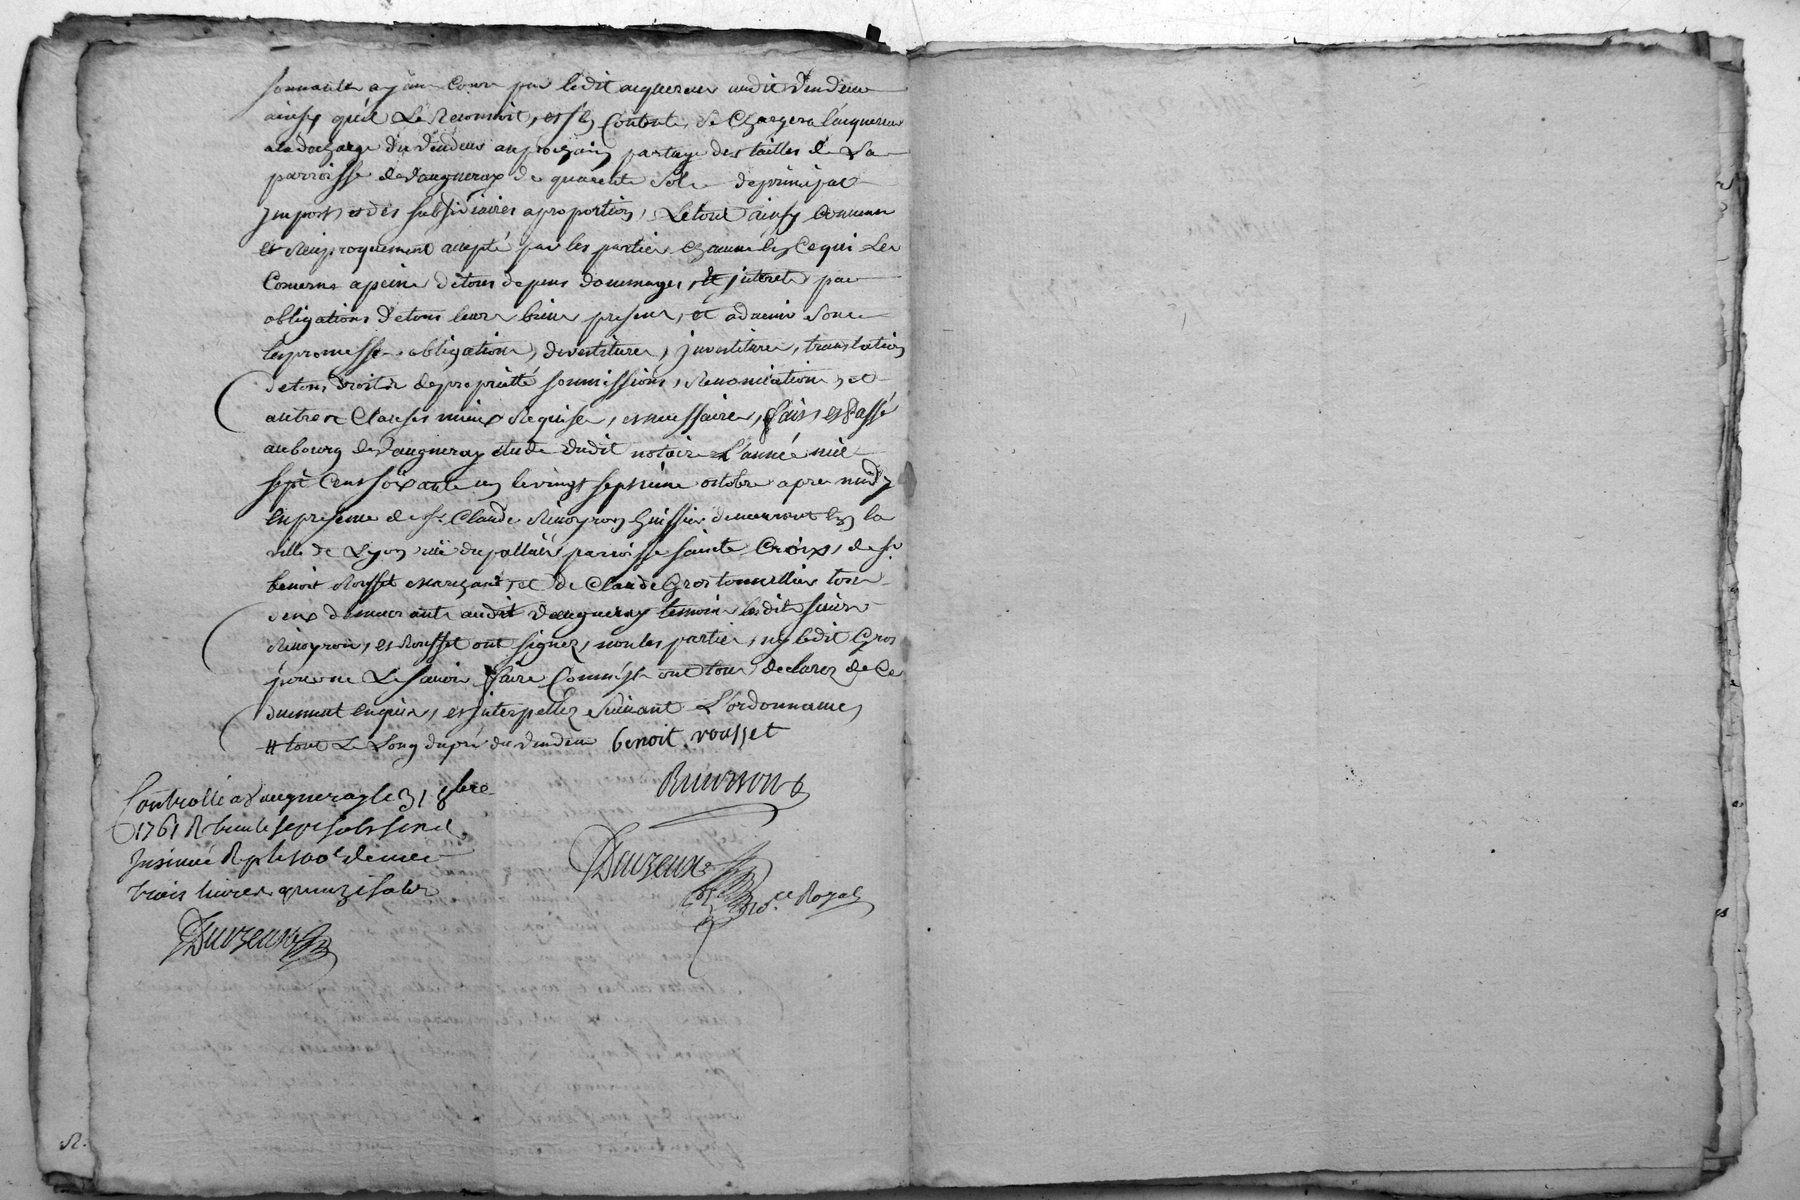 sonnantes ayant cours par ledit acquereur audit Vendeur
ainsy qu'il Le Reconnoit, et s'en Contente, se Chargera l'acquereur
a la decharge du Vendeur au prochain partage des tailles de La
parroisse de Vaugneray de quarente sols de principal
Impost et des subsidiaires a proportion, Le tout ainsy Convenu
et Reciproquement accepté par les parties Chacune en Ce qui Les
Concerne a peine de tous depens dommages, et jnterets par
obligations de tous leurs biens presens, et advenir sous
les promesses, obligations, devestitures, jnvestitures, translation
de tous droits de proprietté soumissions, Renonciations, et
autres Clauses mieux Requises, et necessaires, fait et Passé
au bourg de Vaugneray étude dudit notaire L'année mil
sept Cent soixante un le vingt septieme octobre apres midy
en presence de sr. Claude Rivoyron huissier demeurant en la
ville de Lyon ruë du pallais parroisse sainte Croix, de sr.
benoit Rousset marchand, et de Claude Gros tonnellier tous
deux demeurants audit Vaugneray temoins lesdits sieurs
Rivoyron, et Rousset ont signez, non les parties, ny ledit Gros
pour ne Le savoir faire Comme ils ont tous declarez de Ce
duement enquis, et jnterpellez suivant L'ordonnance,
# tout Le Long du pré du Vendeur benoit rousset
Controllé a Vaugneray le 31 8bre
1761 R
Insinué R
trois livres quinze sols
Rivoyron
Duvzeux
Nore. Royal
Duvzeux